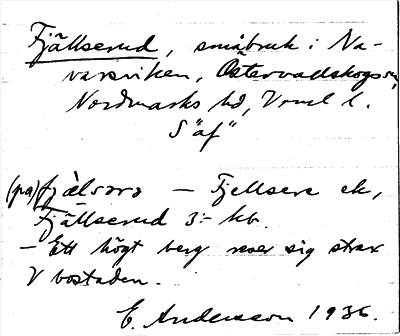 Fjällserud, småbruk i Na-
varsviken, Östervallskogs sn,
Nordmarks hd, Vrml l.
S "äf"
(på) fjälsərə — Fjellsere ek,
Fjällserud 3:- kb.
— Ett högt berg reser sig strax
V bostaden.
E. Andersson 1936.